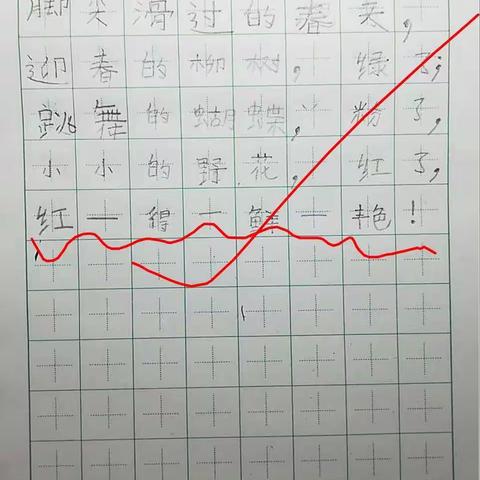 脚尖滑过的春天,
迎春的柳树, 绿了;
跳舞的蝴蝶, 粉了,
小小的野花, 红了,
红—得—鲜—艳!